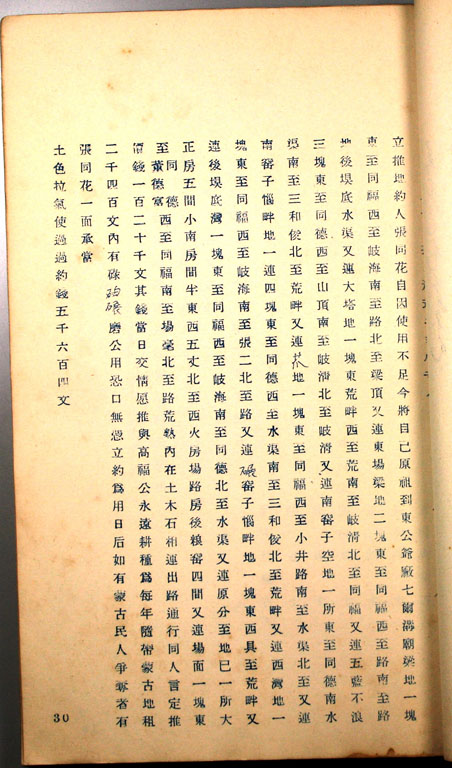 立推地約人張同花自因使用不足今將自己原祖到東公爺廠七爾溝廟梁地一塊
東至同福西至岐海南至路北至梁頂又連東場梁地二塊東至同福西至路南至路
地後埧底水渠又連大塔地一塊東荒畔西至荒南至岐淸北至同福又連五藍不浪
三塊東至同德西至山頂南至岐淸北至岐淸又連南窰子空地一所東至同德南水
渠南至三和俊北至荒畔又連 地一塊東至同福西至小井路南至水渠北至又連
南窰子惱畔地一連四塊東至同德西至水渠南至三和俊北至荒畔又連西灣地一
塊東至同福西至岐海南至張二北至路又連碾窰子惱畔地一塊東西具至荒畔又
連後埧底灣一塊東至同福西至岐海南至同德北至水渠又連原分至地巳一所大
正房五間小南房間半東西五丈北至西火房場路房後糗窰四間又連場面一塊東
至同德董德富西至同福南至塲毫北至路荒熟內在土木石相連出路通行同人言定推
淸錢一百二十千文其錢當日交情愿推與高福公永遠耕種爲每年隨帶蒙古地租
二千四百文內有碌 碾磨公用恐口無憑立約爲用日后如有蒙古民人爭奪者有
張同花一面承當
土色拉氣使過過約錢五千六百四文
30